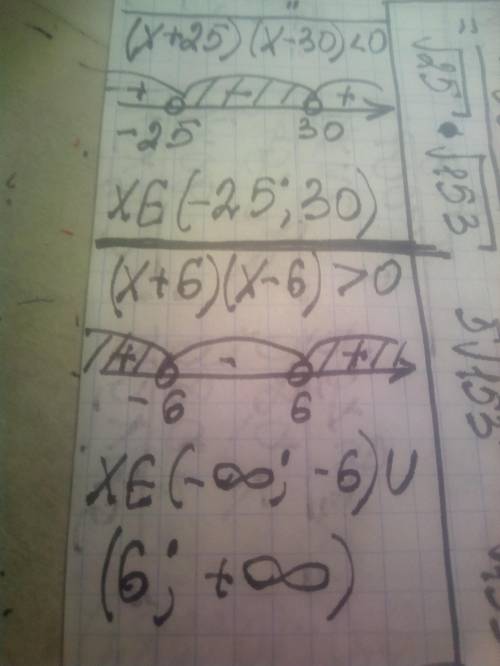 (x+25)(x-30)<0
+ - +
-25 30
x∈(-25; 30)
(x+6)(x-6)>0
+ - +
-6 6
x∈(-∞; -6)∪
(6; +∞)
=
√25 · √153
5√153